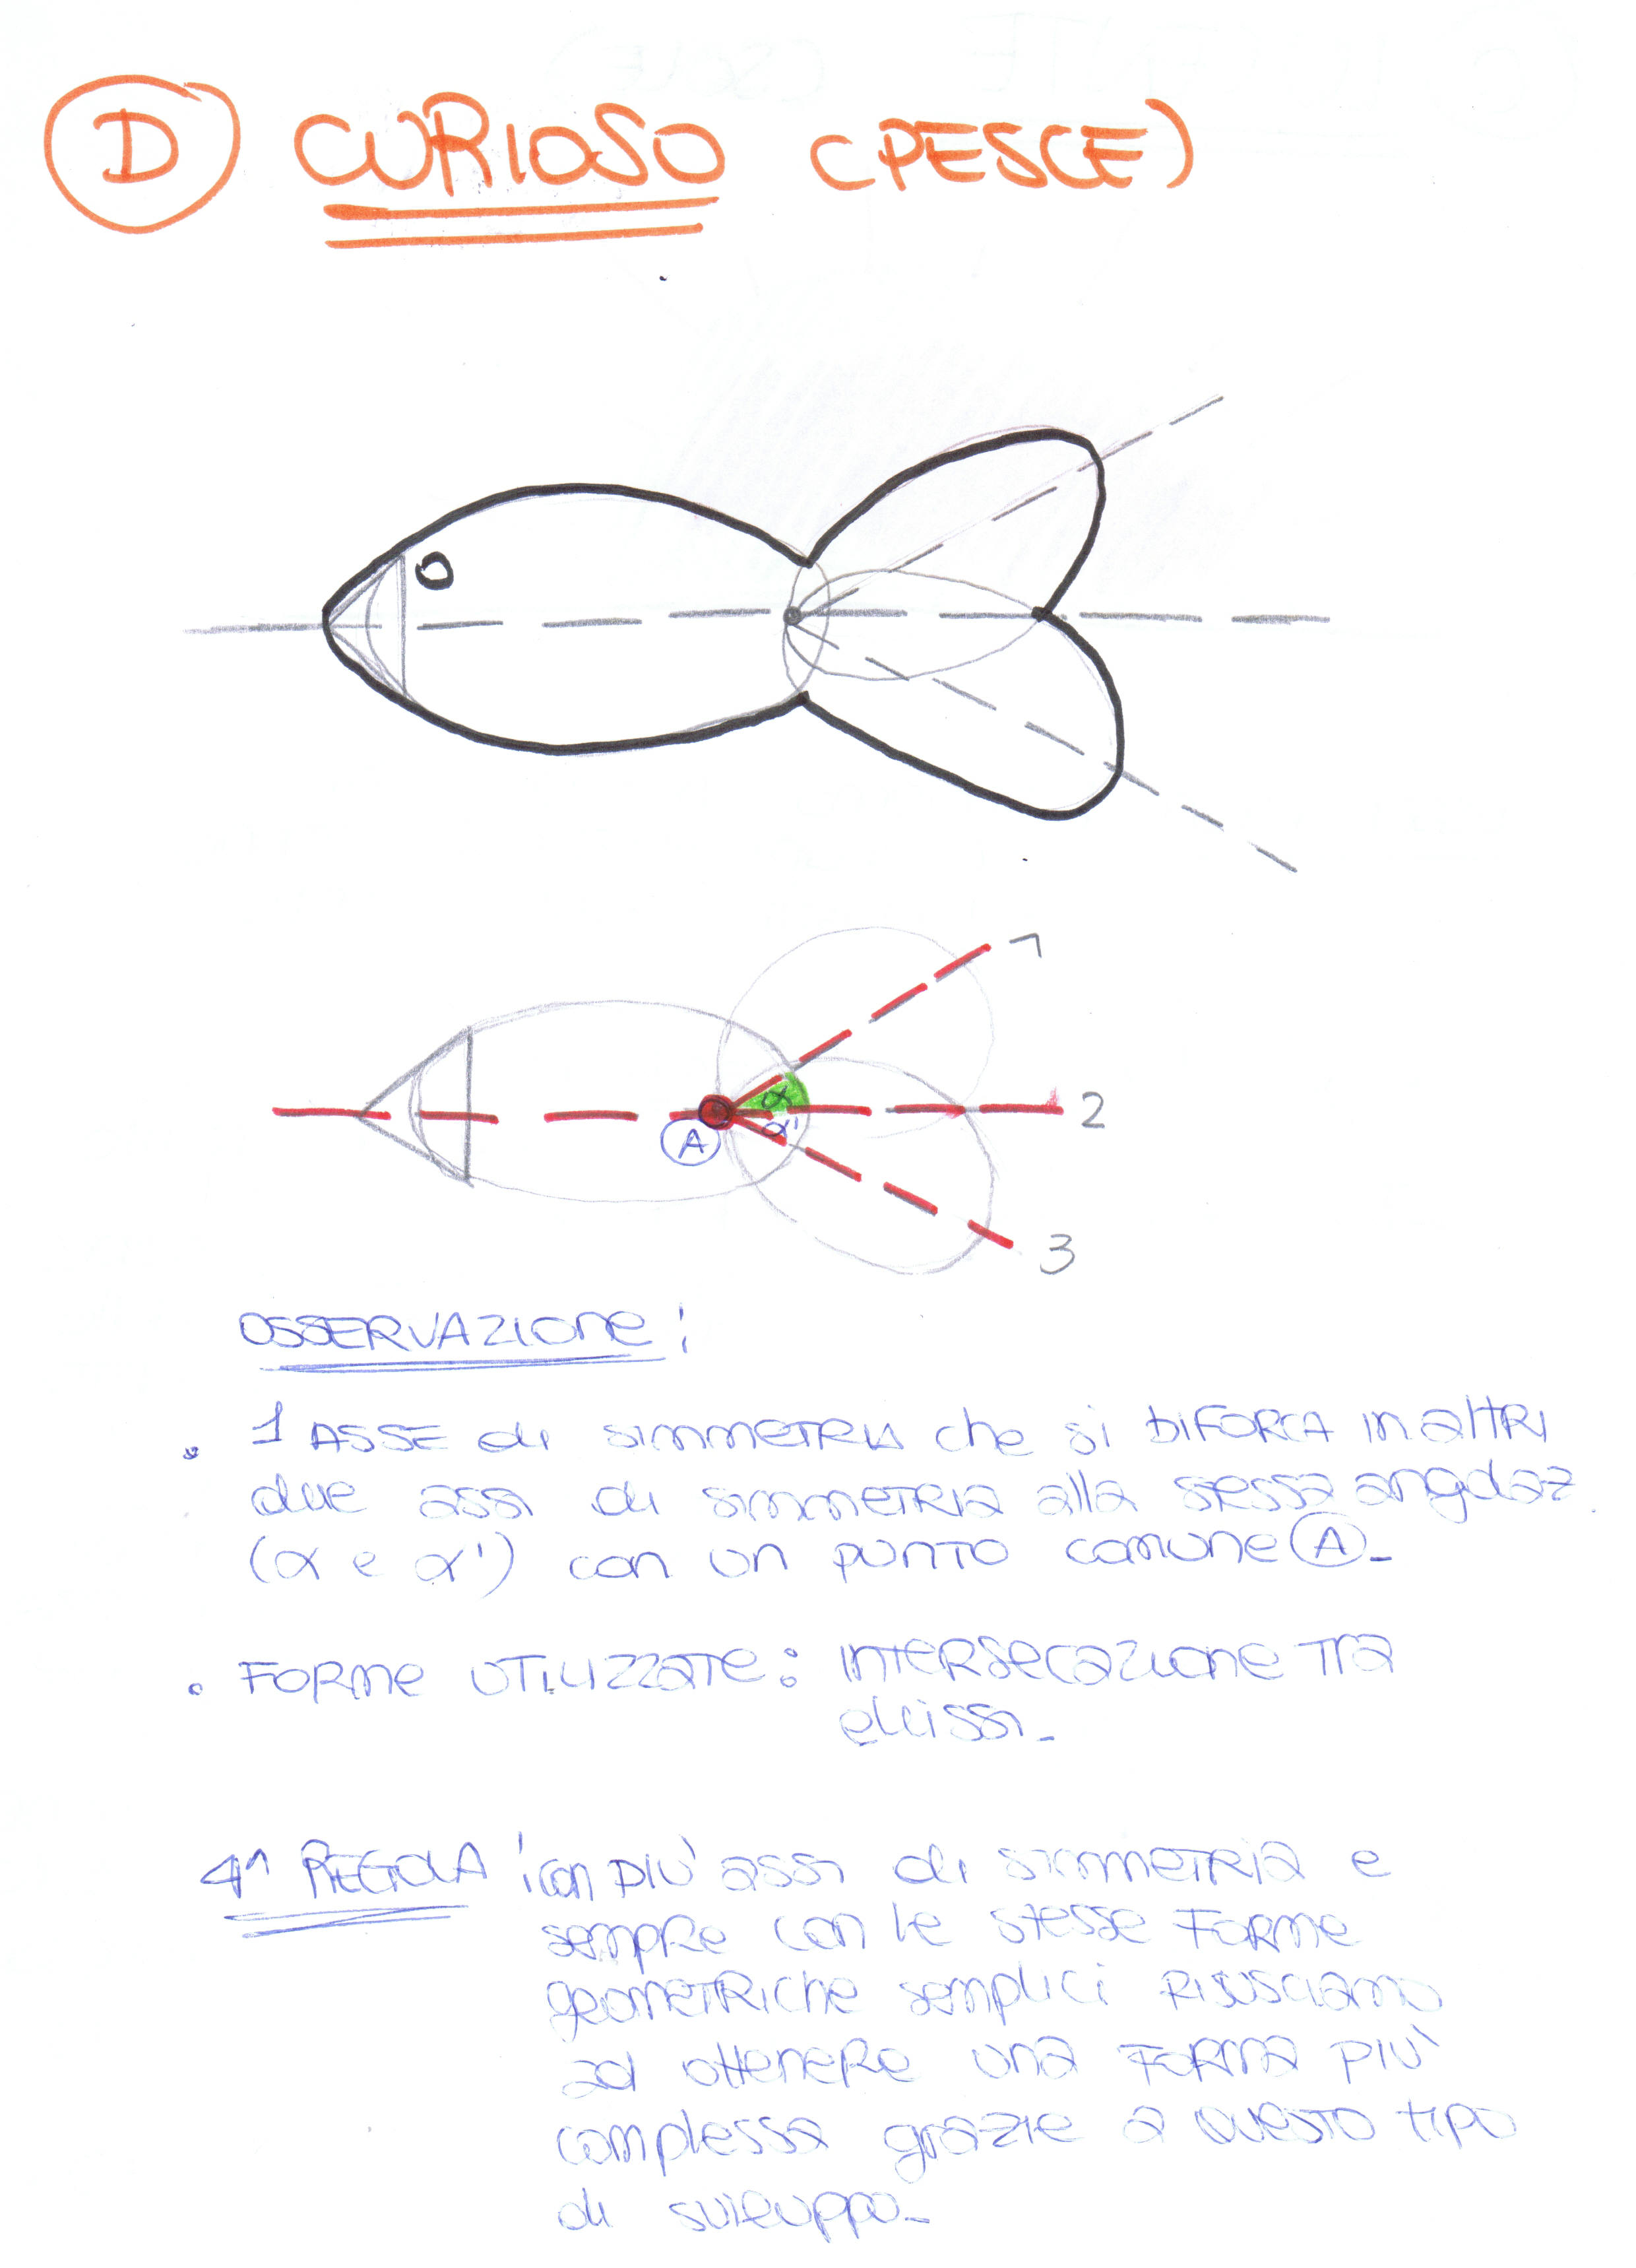 D CURIOSO (PESCE)
1
α
2
α'
A
3
OSSERVAZIONE:
. 1 ASSE di simmetria che si biforca in altri
due assi di simmetria alla stessa angolaz.
(α e α') con un punto comune A-
. Forme utilizzate: intersecazione tra
elissi-
4^ REGOLA: con più assi di simmetria e
sempre con le stesse forme
geometriche semplici
ad ottenere una forma più
complessa grazie a questo tipo
di sviluppo-